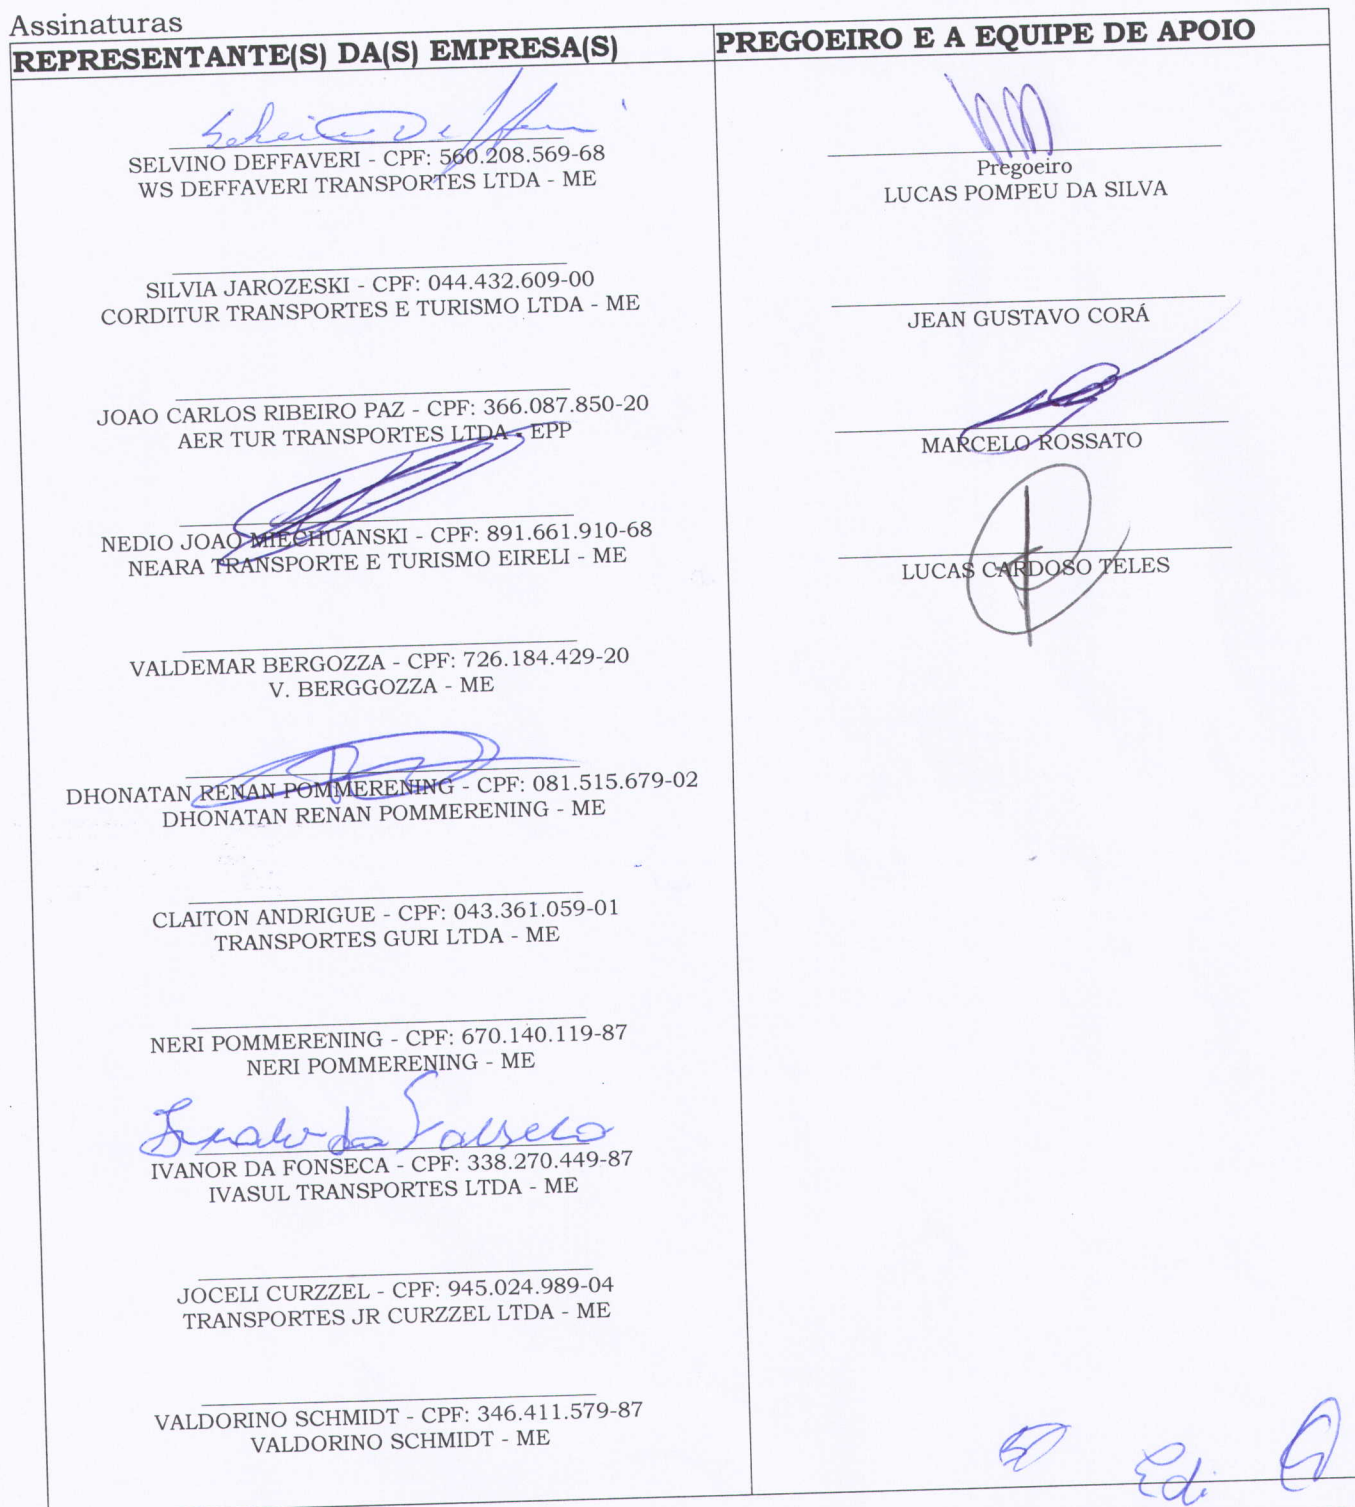 Assinaturas
REPRESENTANTE(S) DA(S) EMPRESA(S)
SELVINO DEFFAVERI - CPF: 560.208.569-68
WS DEFFAVERI TRANSPORTES LTDA - ME
SILVIA JAROZESKI - CPF: 044.432.609-00
CORDITUR TRANSPORTES E TURISMO LTDA - ME
JOAO CARLOS RIBEIRO PAZ - CPF: 366.087.850-20
AER TUR TRANSPORTES LTDA - EPP
NEDIO JOAO MIECHUANSKI - CPF: 891.661.910-68
NEARA TRANSPORTE E TURISMO EIRELI - ME
VALDEMAR BERGOZZA - CPF: 726.184.429-20
V. BERGGOZZA - ME
DHONATAN RENAN POMMERENING - CPF: 081.515.679-02
DHONATAN RENAN POMMERENING - ME
CLAITON ANDRIGUE - CPF: 043.361.059-01
TRANSPORTES GURI LTDA - ME
NERI POMMERENING - CPF: 670.140.119-87
NERI POMMERENING - ME
IVANOR DA FONSECA - CPF: 338.270.449-87
IVASUL TRANSPORTES LTDA - ME
JOCELI CURZZEL - CPF: 945.024.989-04
TRANSPORTES JR CURZZEL LTDA - ME
VALDORINO SCHMIDT - CPF: 346.411.579-87
VALDORINO SCHMIDT - ME
PREGOEIRO E A EQUIPE DE APOIO
Pregoeiro
LUCAS POMPEU DA SILVA
JEAN GUSTAVO CORÁ
MARCELO ROSSATO
LUCAS CARDOSO TELES
Edi